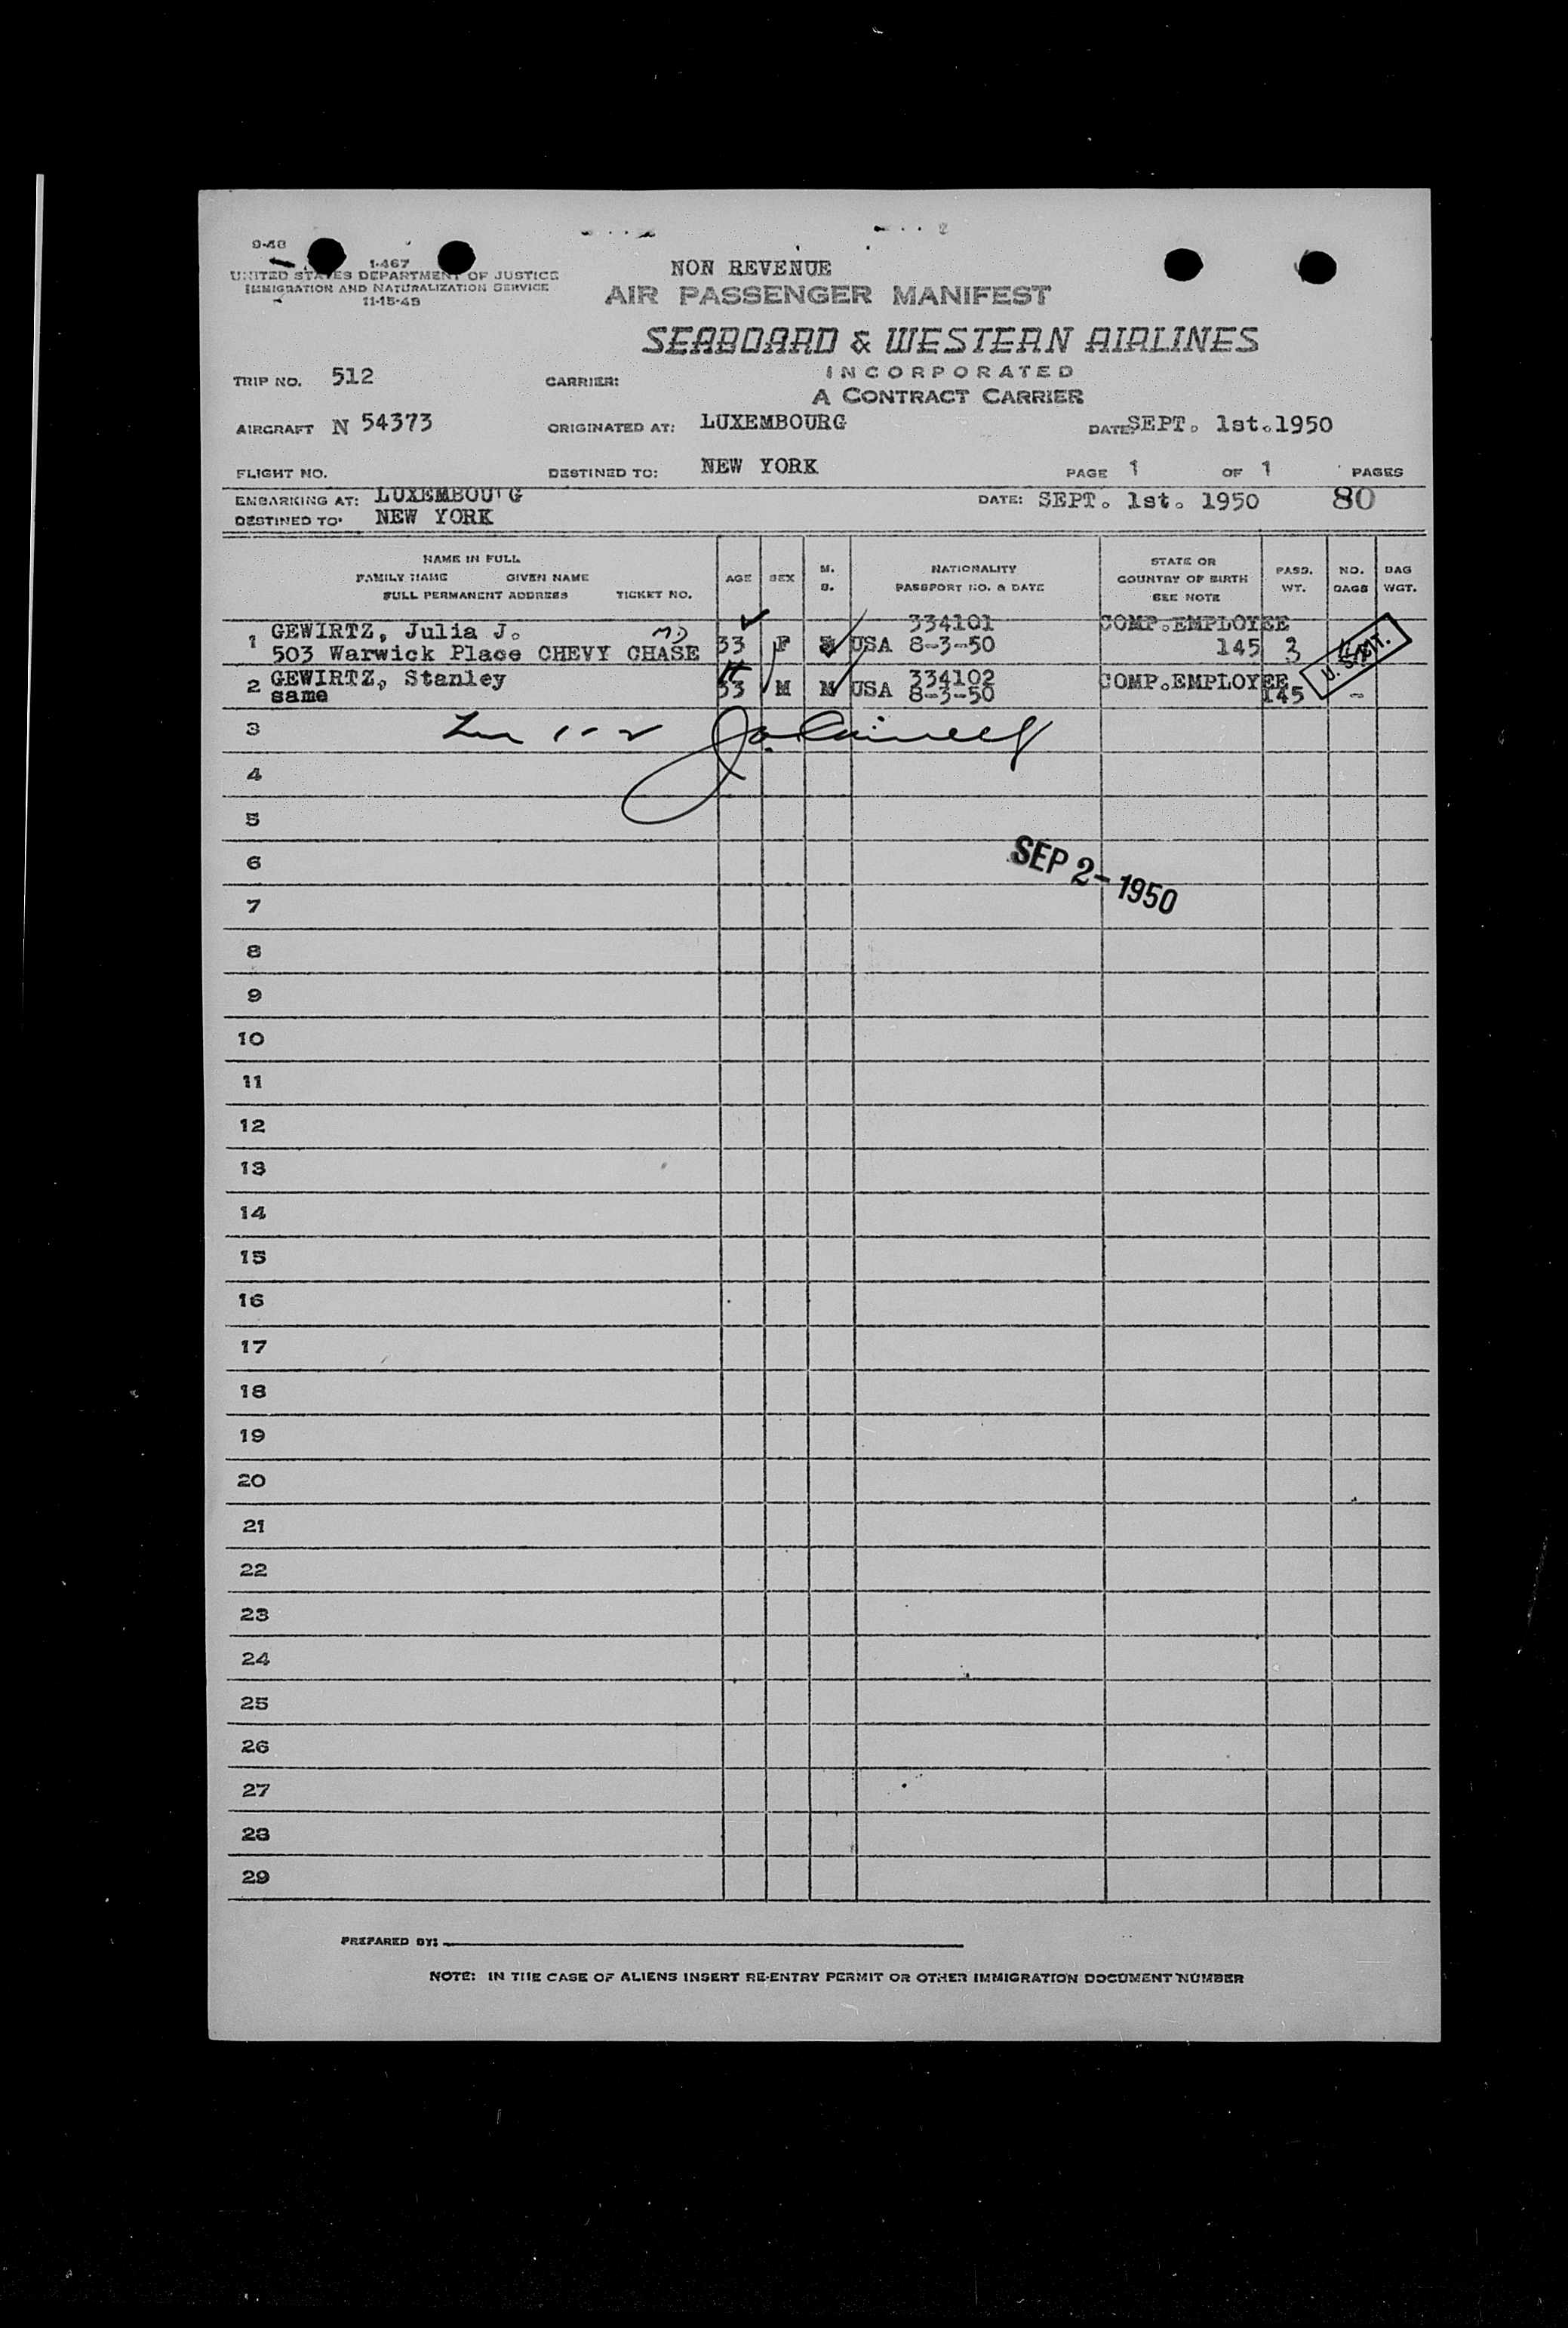 9-48
1-467
UNITED STATES DEPARTMENT OF JUSTICE
IMMIGRATION AND NATURALIZATION SERVICE
11-15-49
NON REVENUE
AIR PASSENGER MANIFEST
SEABOARD & WESTERN AIRLINES
INCORPORATED
A CONTRACT CARRIER
TRIP NO. 512 CARRIER:
AIRCRAFT N 54373 ORIGINATED AT: LUXEMBOURG DATE SEPT. 1st. 1950
FLIGHT NO. DESTINED TO: NEW YORK PAGE 1 OF 1 PAGES
EMBARKING AT: LUXEMBOURG DATE: SEPT. 1st. 1950 80
DESTINED TO: NEW YORK
NAME IN FULL
FAMILY NAME GIVEN NAME
FULL PERMANENT ADDRESS TICKET NO.
AGE SEX M. S. NATIONALITY PASSPORT NO. & DATE STATE OR COUNTRY OF BIRTH SEE NOTE PASS. WT. NO. BAGS BAG WGT.
1 GEWIRTZ, Julia J. MD 334101 COMP.EMPLOYEE
503 Warwick Place CHEVY CHASE 33 F USA 8-3-50 145 3
U.S. CIT.
2 GEWIRTZ, Stanley 334102 COMP.EMPLOYEE
same 33 M M USA 8-3-50 145 -
3 1-2
4
5
6
SEP 2-1950
7
8
9
10
11
12
13
14
15
16
17
18
19
20
21
22
23
24
25
26
27
28
29
PREPARED BY:
NOTE: IN THE CASE OF ALIENS INSERT RE-ENTRY PERMIT OR OTHER IMMIGRATION DOCUMENT NUMBER